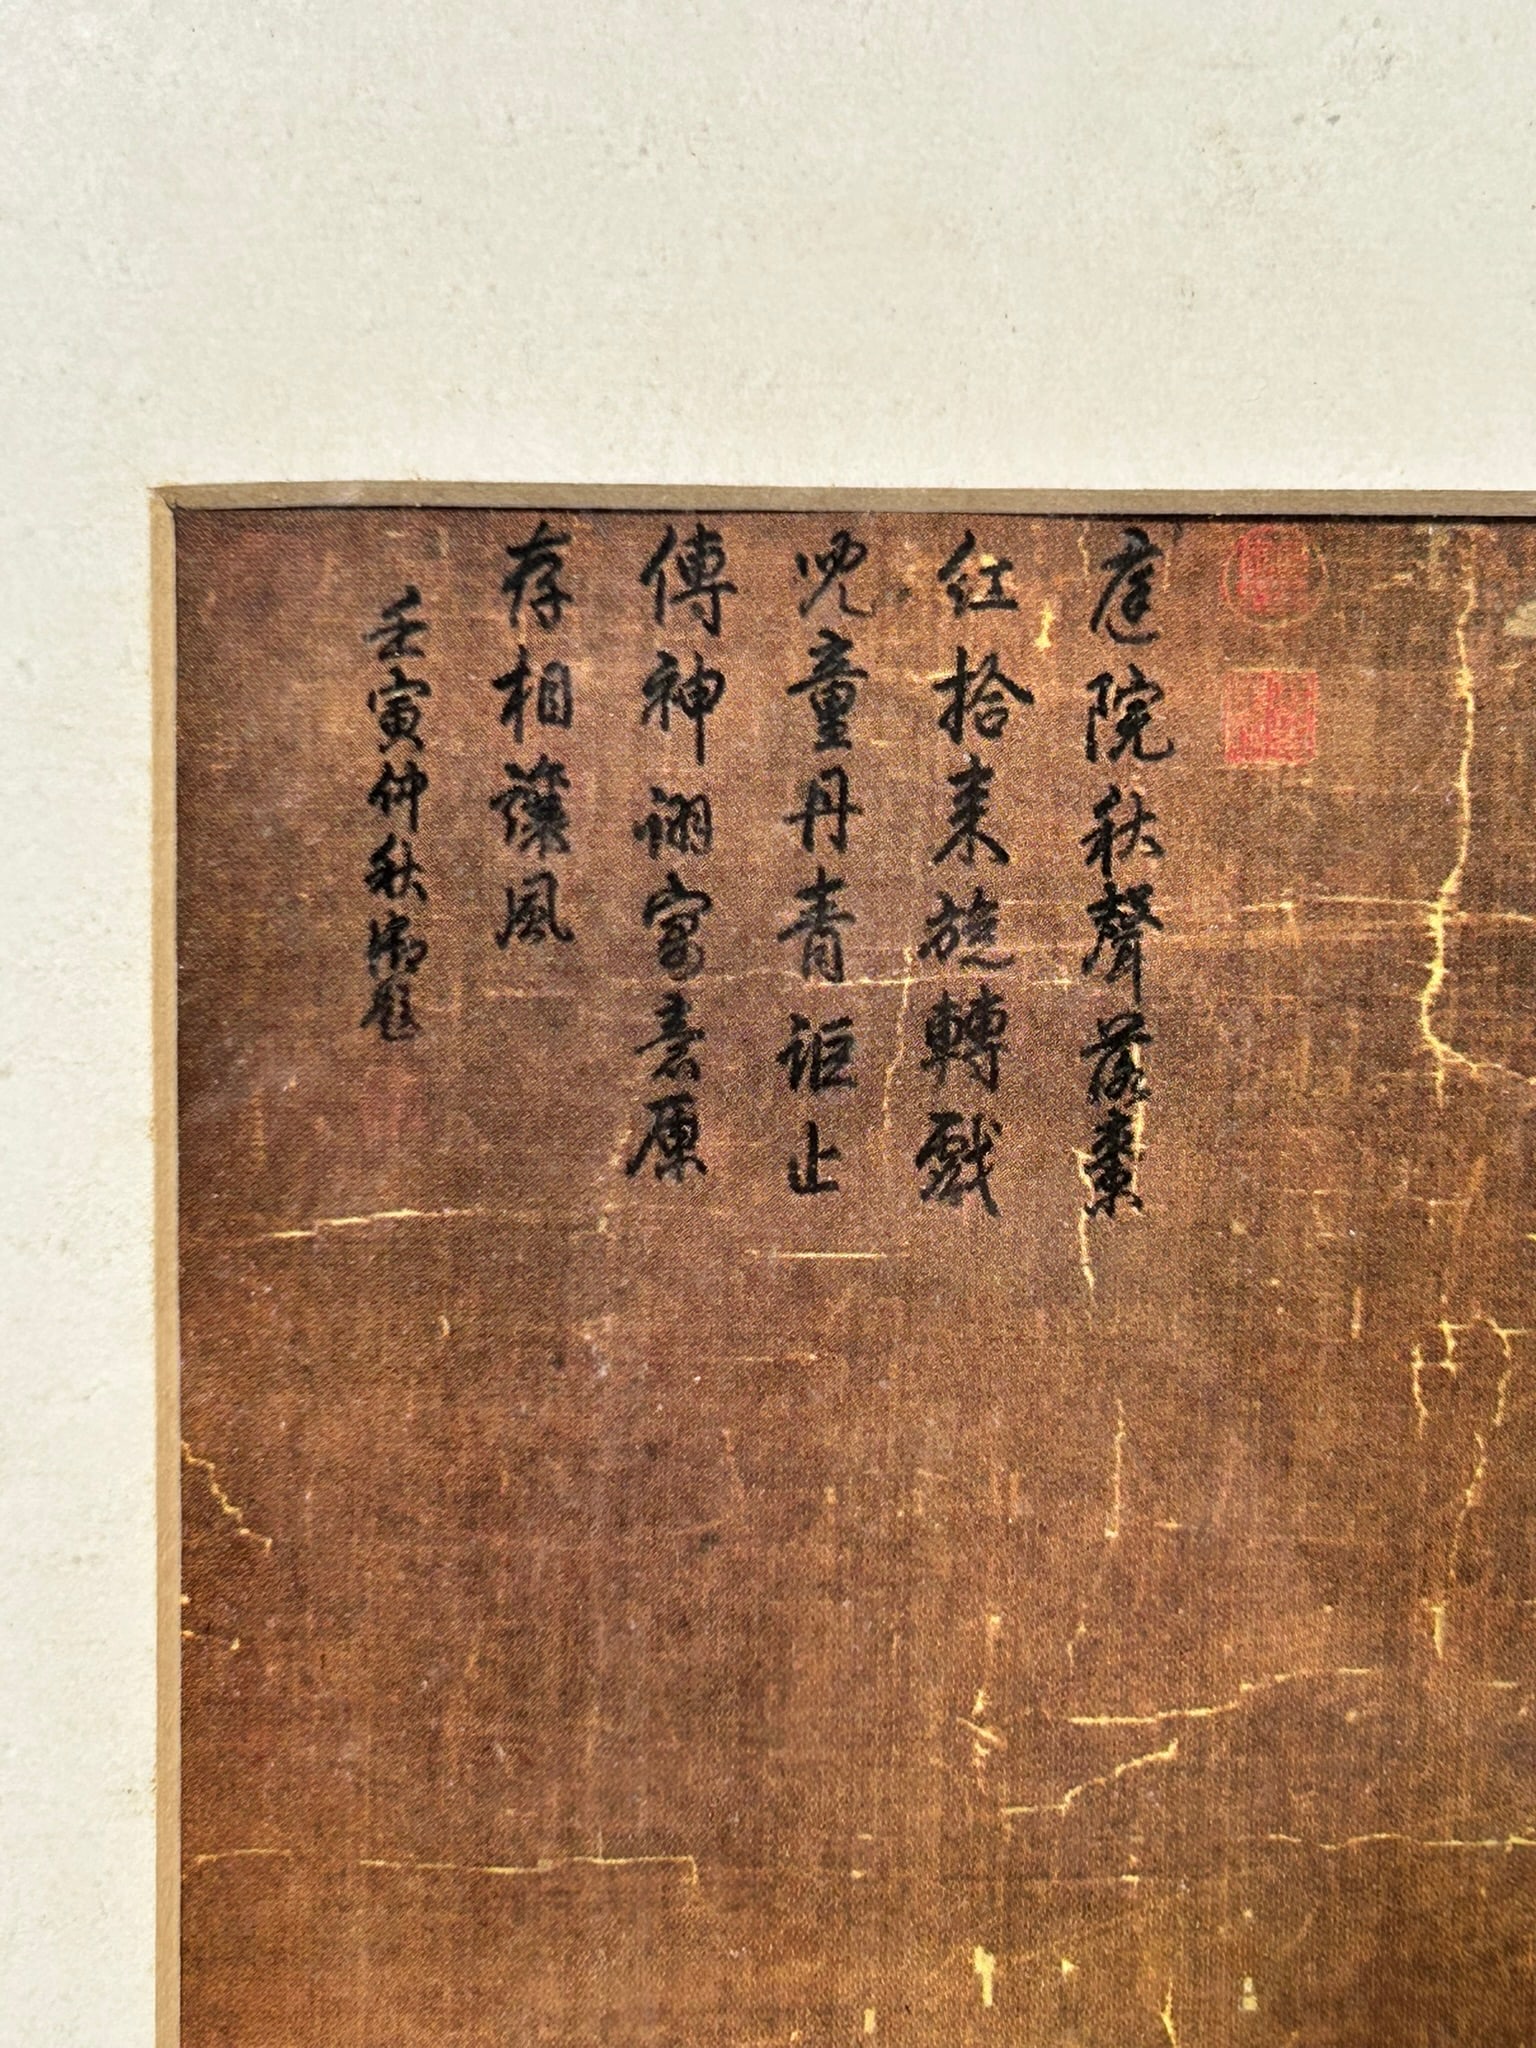 庭院秋聲落棗
紅拾來旋轉戲
兒童丹青詎止
傳神詡寓意原
存相讓風
壬寅仲秋御題